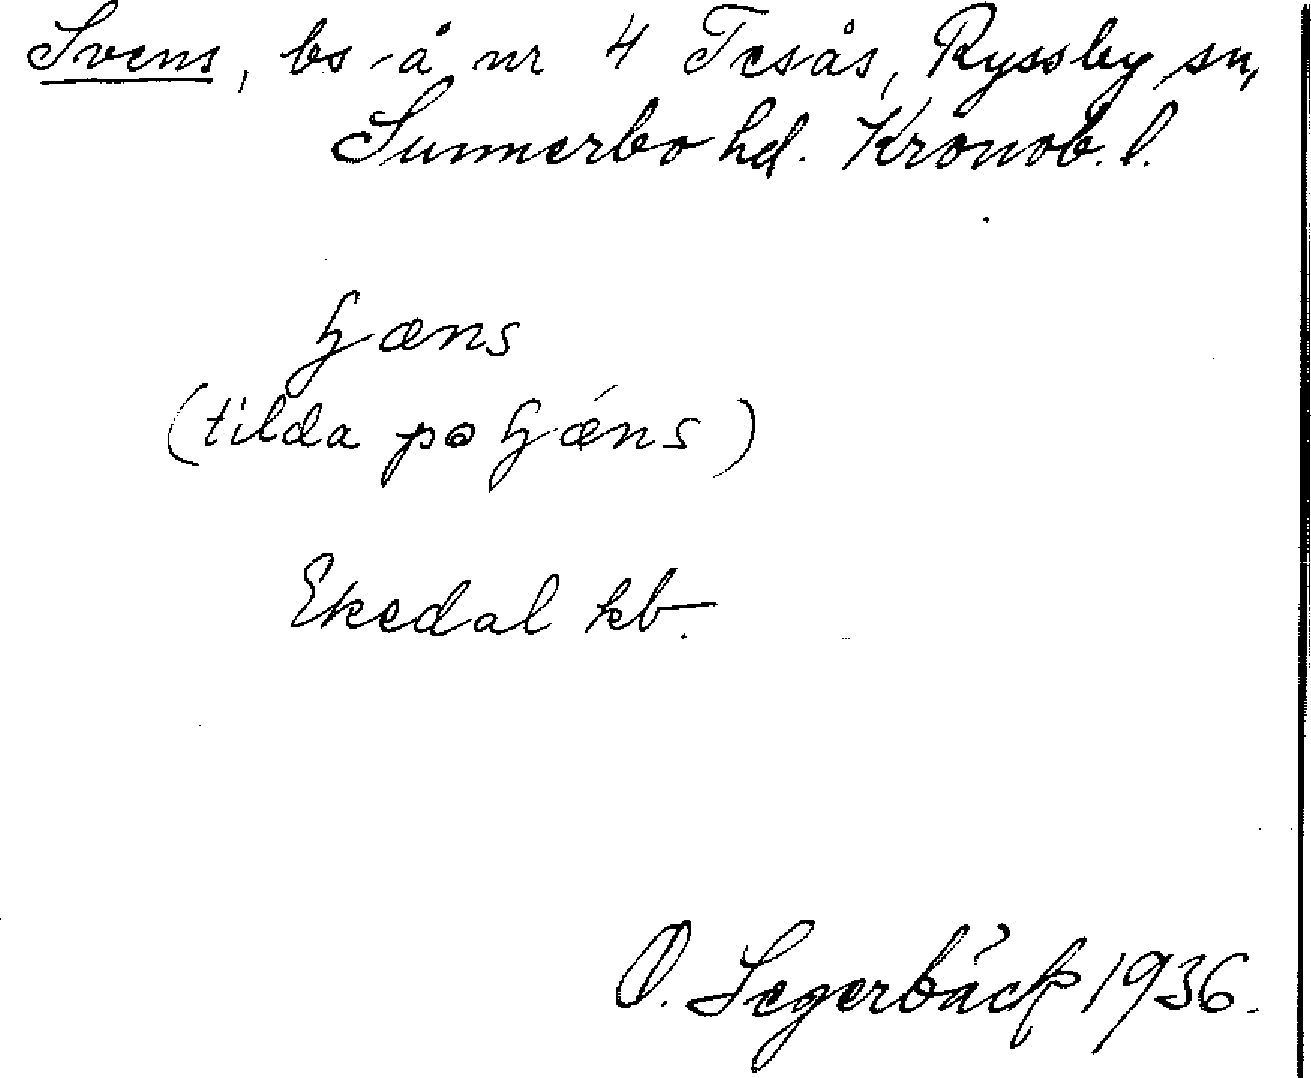 Svens, bs å nr 4 Tesås, Ryssby sn,
Sunnerbo hd. Kronob. l.
ɧæns
(tilda po ɧǽns)
Ekedal kb.
O. Segerbäck 1936.